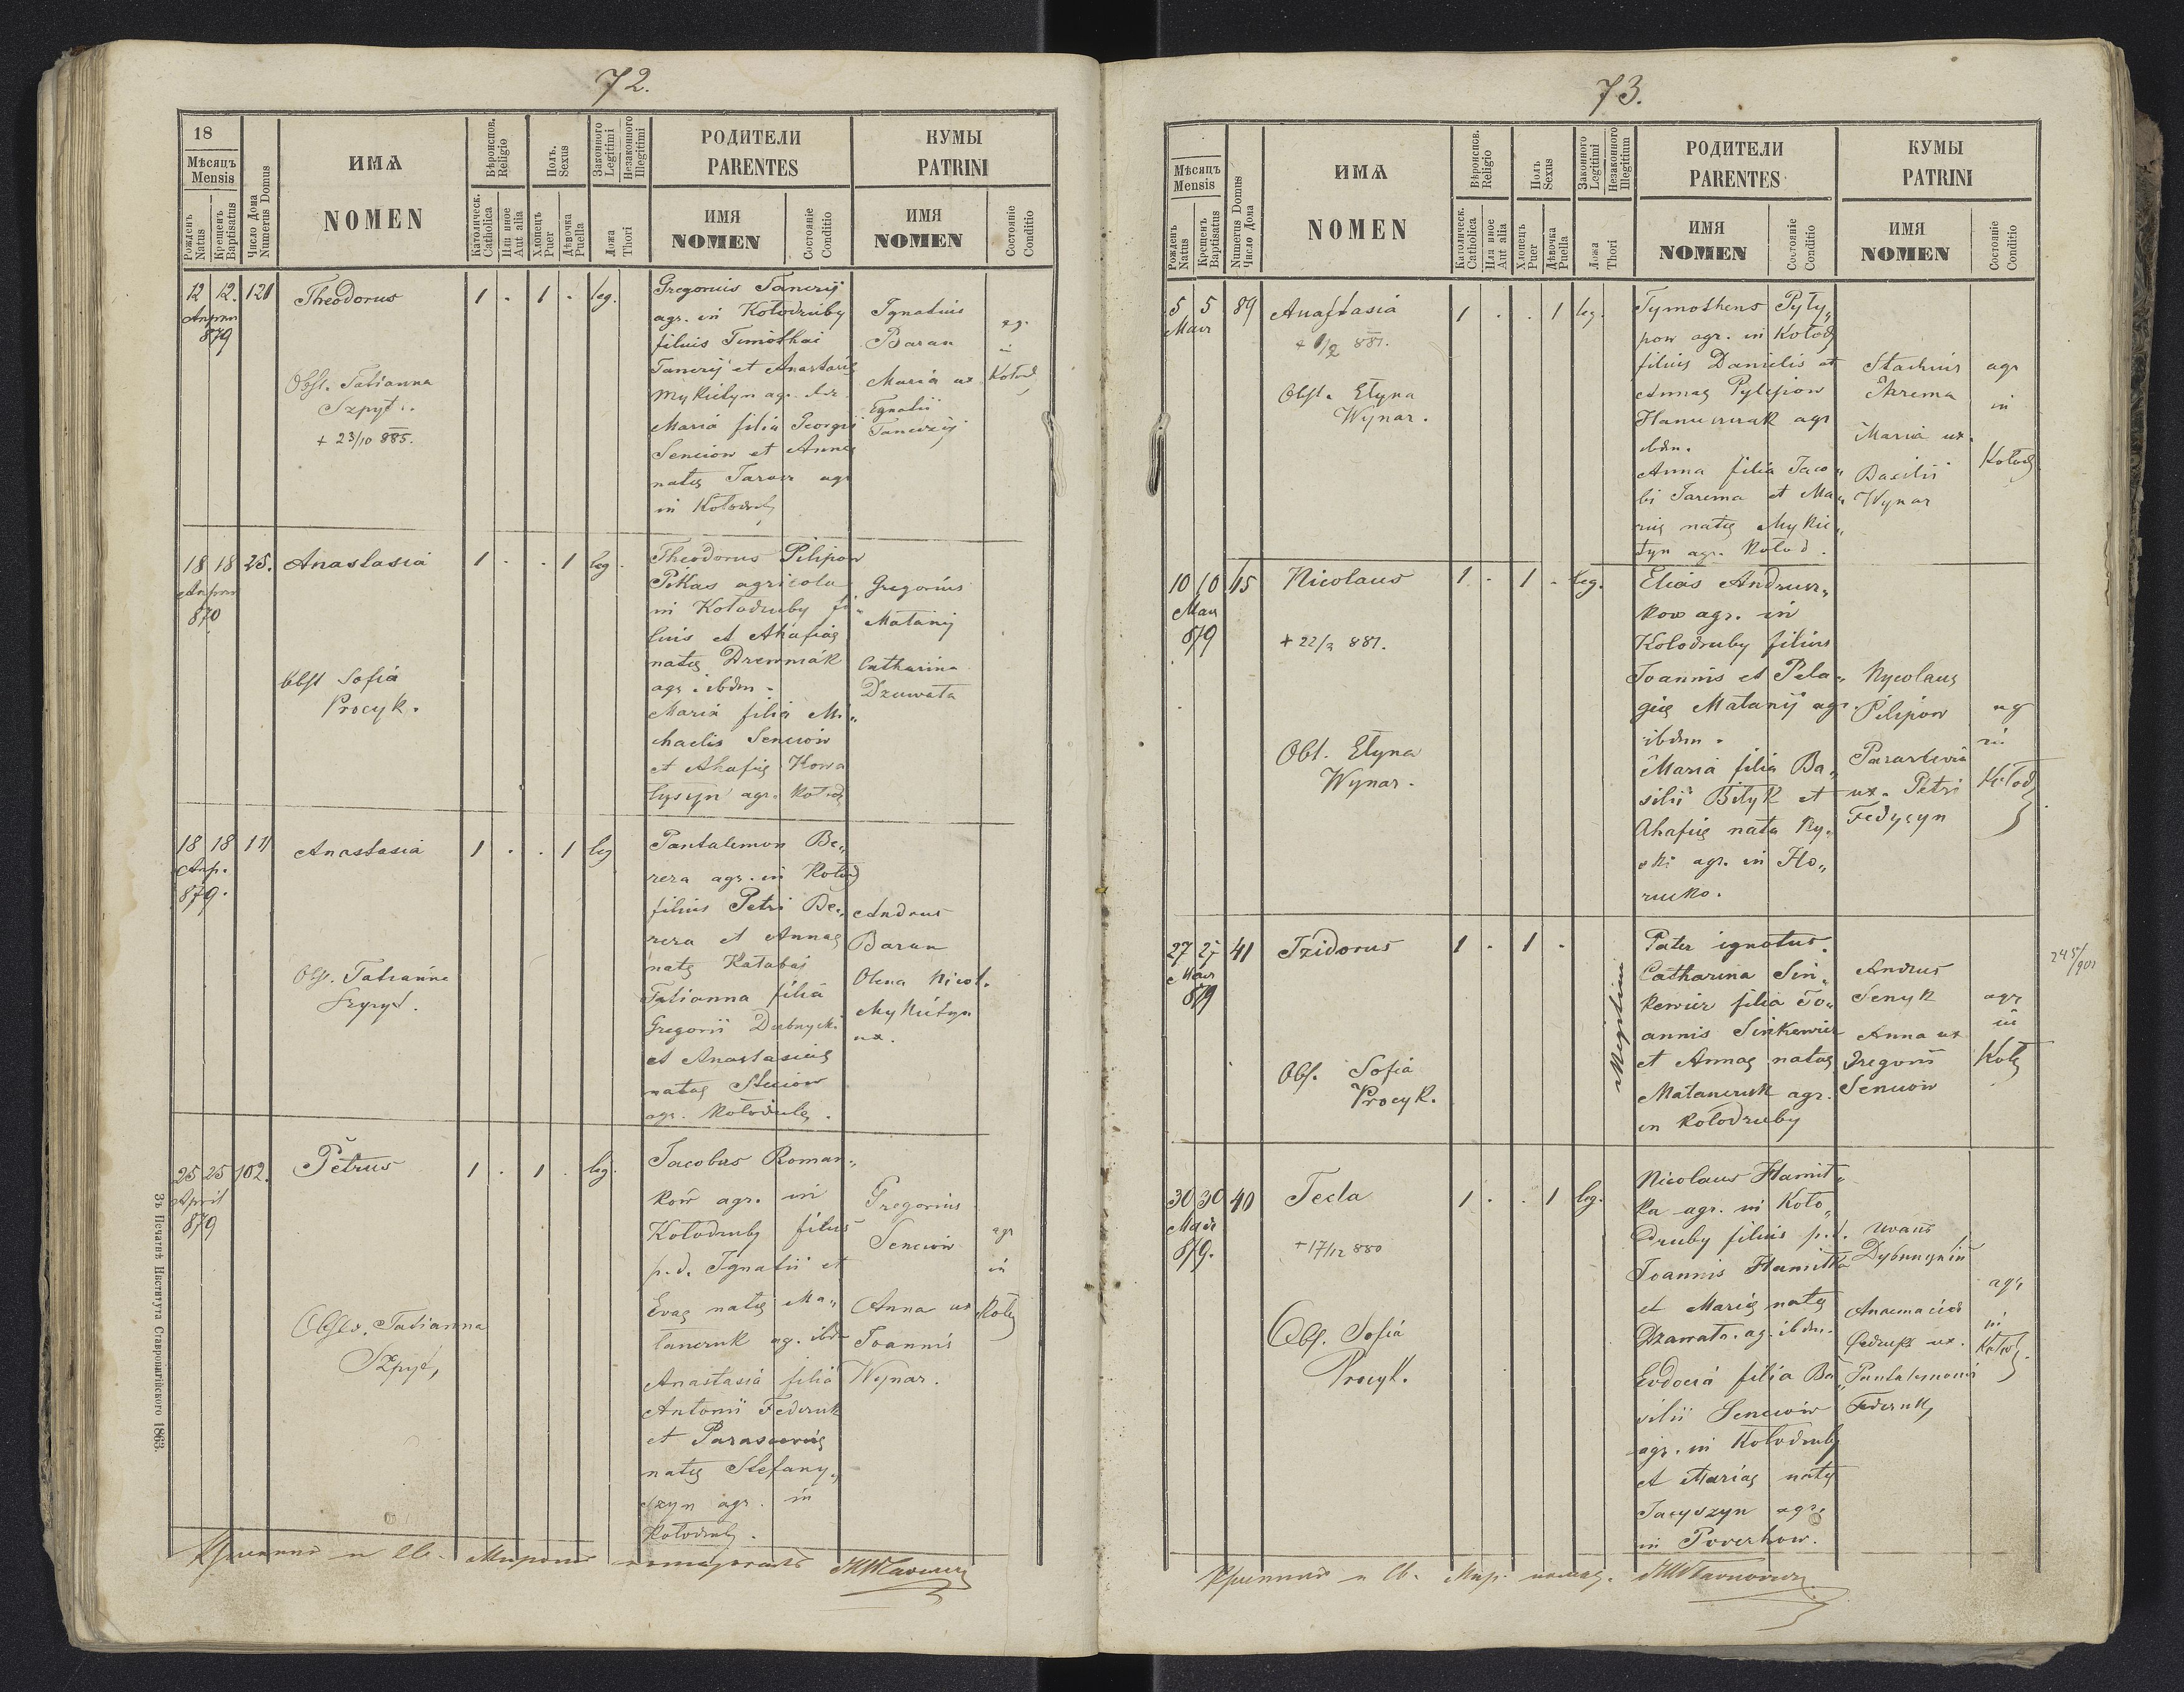 72.
18
Мѣсяцъ
Mensis
Рожденъ
Natus
Крещенъ
Baptisatus
Число Дома
Numerus Domus
ИМѦ
NOMEN
Вѣроиспов.
Religio
Католическ.
Catholica
Или иное
Aut alia
Полъ.
Sexus
Хлопецъ
Puer
Дѣвочка
Puella
Законного
Legitimi
Незаконного
Illegitimi
Ложа
Thori
РОДИТЕЛИ
PARENTES
ИМЯ
NOMEN
Состоянїе
Conditio
КУМЫ
PATRINI
ИМЯ
NOMEN
Состоянїе
Conditio
12 12. 121 Theodorus 1 . 1 . leg.
879
Obst. Tatianna
Szpyt..
+ 23/10 885.
Gregorius Tanczij
agr. in Kołodruby
filius Timothai
Tanczij et Anastasię
Mykietyn agr.
Maria filia Georgii
Senciow et Annę
natę agr
in Kołodrub
Ignatius
Baran
Maria ux
Ignatii
Tanczij
ag.
in
Kołod
18 18 25. Anastasia 1 . . 1 leg.
870
Obst Sofia
Procyk.
Theodorus Pilipow
agricola
in Kołodruby fi
lius et Ahafiaę
natę Drewniak
agr. ibdm.
Maria filia Mi„
chaelis Senciów
et Ahafię Kowa
lyszyn agr. Kołod
Gregorius
Matanij
Catharina
Dzuwała
18 18 11 Anastasia 1 . . 1 leg
879.
Obs. Tatianna
Szpyt.
Pantalemon Be„
rera agr. in Kołod
filius Petri Be„
rera et Annaę
natę Katabaj
Tatianna filia
Gregorii Dubnycki
et Anastasiaę
nataę
agr. Kołodrub.
Andrus
Baran
Olena Nicol.
Mykietyn
ux.
25 25 102. Petrus 1 . 1 . leg.
April
879
Obstr. Tatianna
Szpyt,
Jacobus Roman„
ków agr. in
Kołodruby filius
p. d. Ignatii et
Evaę natę Ma„
tanczuk ag. ibd
Anastasia filia
Antonii Federuk
et Parascevię
natę Stefany„
szyn agr. in
Kołodrub.
Gregorius
Senciów
Anna ux
Joannis
Wynar.
agr
in
Koł
Зъ Печатнѣ Института Ставропигійского 1863.
73.
Мѣсяцъ
Mensis
Рожденъ
Natus
Крещенъ
Baptisatus
Numerus Domus
Число Дома
ИМѦ
NOMEN
Вѣроиспов.
Religio
Католическ.
Catholica
Или иное
Aut alia
Полъ
Sexus
Хлопецъ
Puer
Дѣвочка
Puella
Законного
Legitimi
Незаконного
Illegitimi
Ложа
Thori
РОДИТЕЛИ
PARENTES
ИМЯ
NOMEN
Состоянїе
Conditio
КУМЫ
PATRINI
ИМЯ
NOMEN
Состоянїе
Conditio
5 5 89 Anastasia 1 . . 1 leg.
881.
Obst. Elyna
Wynar.
Tymotheus Pyły„
pow agr. in Kołod
filius Danielis et
Annaę Pylypiow
agr
ibdm.
Anna filia Jaco„
bi Jarema et Ma„
rię natę Mykie„
tyn agr. Kołod.
Jarema
Maria ux.
Basilii
Wynar
agr
in
Kołod
10 10 45 Nicolaus 1 . 1 . leg.
879
+ 22/3 881.
Obt. Elyna
Wynar.
Elias Andrusz„
kow agr. in
Kołodruby filius
Joannis et Pela„
gię Matanij agr
ibdm.
Maria filia Ba„
silii Biłyk et
Ahafię nata Ry„
ski agr. in Ho„
rucko.
Nycolaus
Pilipow
Parascevia
ux. Petri
Fedyszyn
ag
in
Kołod
27 27 41 Izidorus 1 . 1 .
879
Obs. Sofia
Procyk.
Illegitim
Pater ignotus.
Catharina Sin„
kewicz filia Jo„
annis Sinkewicz
et Annaę nataę
Matanczuk agr.
in Kołodruby
Andrus
Senyk
Anna ux
Gregorii
Senciów
agr
in
Koł
245/901
30 30 40 Tecla 1 . . 1 leg.
879.
+ 17/12 880
Obs. Sofia
Procyk.
Nicolaus Hamit„
ka agr. in Koło„
druby filius p. d.
Joannis Hamitka
et Marię natę
Dzuwała. ag. ibdm.
Evdocia filia Ba„
silii Senciów
agr. in Kołodruby
et Mariaę natę
Jacyszyn agr.
in Powerhow.
Анастасія
Федерукъ ux.
Pantalemonis
Federuk
agr
in
Kołod